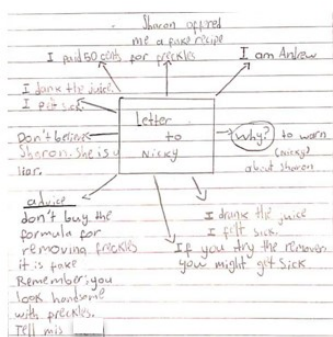 Sharon offred
me a fake recipe
I paid 50 cents for freckles
I am Andrew
I dank the juice.
I felt sick.
Letter
to
Nicky
Don't believe
Sharon. She is a
liar.
Why? to warn
(nicky)
about sharon
advice
don't buy the
formula for
removing freckles
it is fake
Remember, you
look handsome
with freckles.
Tell mis
I drank the juice
I felt sick.
If you try the remover
you might get sick